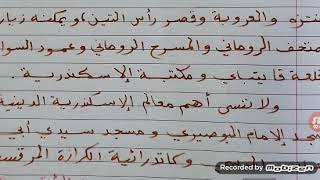 منتزه والعروبة وقصر رأس التين) ويمكنه زيار
متحف الروماني والمسرح الروماني وعمود السوا
قلعة قايتباي ومكتبة الإسكندرية.
ولا ننسى أهم معالم الإسكندرية الدينية
جد الإمام البوصيري ومسجد سيدي أبي
وكاتدرائية الكرازة المرقسية
Recorded by
Mobizen